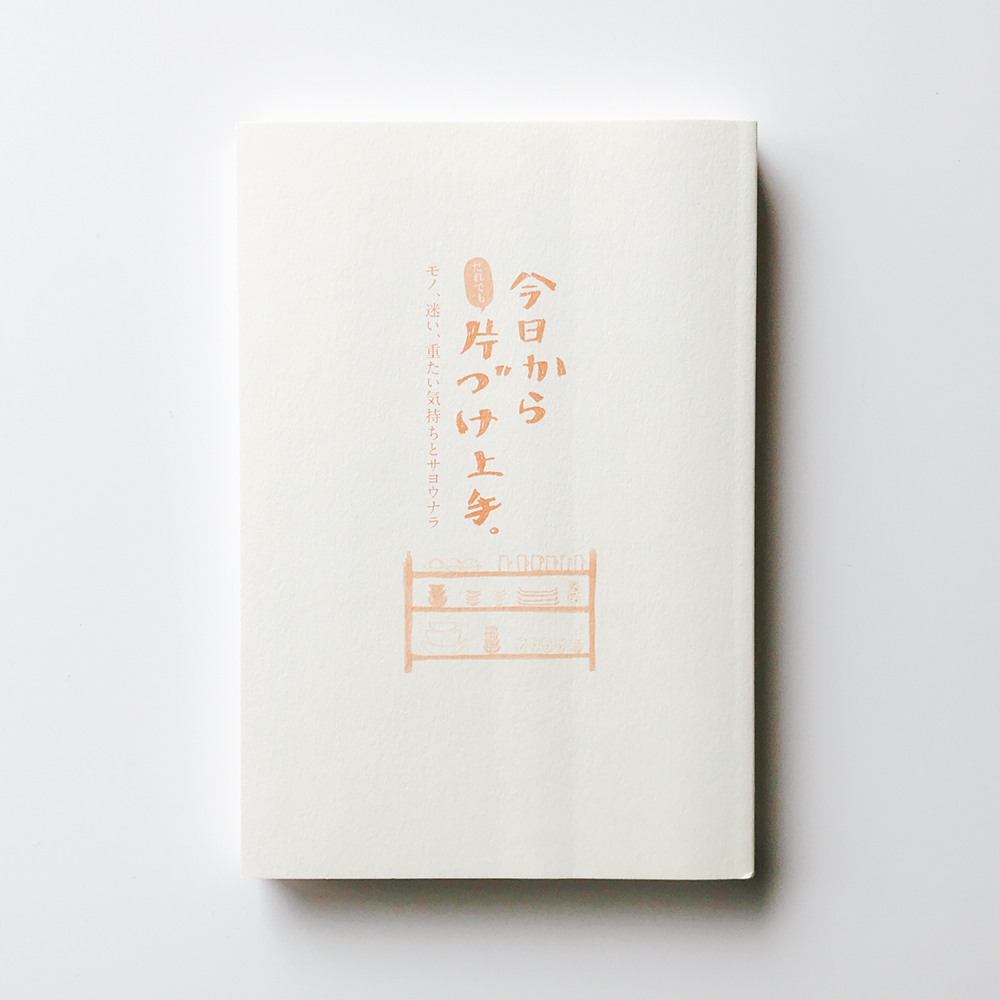 今日から
だれでも
片づけ上手。
モノ、迷い、重たい気持ちとサヨウナラ